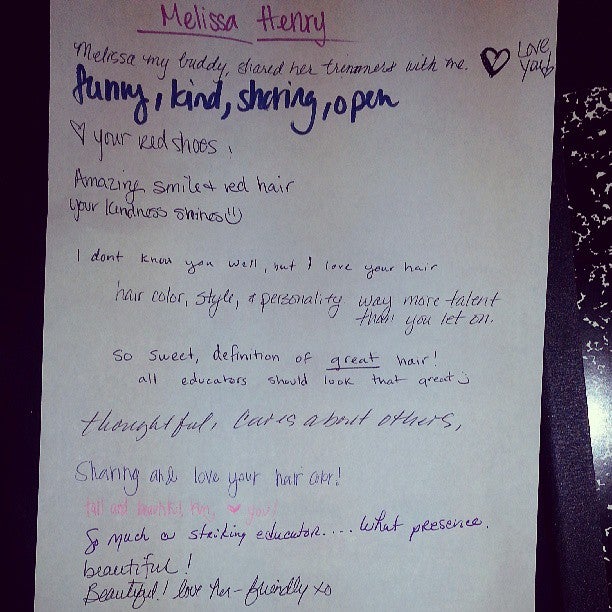 Melissa Henry
Melissa my buddy, shared her trimmers with me. ♡ Love You
funny, kind, sharing, open
♡ your red shoes!
Amazing smile & red hair
your kindness shines :)
I dont know you well, but I love your hair
hair color, style, & personality way more talent
than you let on.
So sweet, definition of great hair!
all educators should look that great :)
thoughtful, cares about others,
Sharing and love your hair color!
tall and beautiful, fun, ♡ you!
So much a striking educator.... what presence.
beautiful!
Beautiful! love her - friendly xo